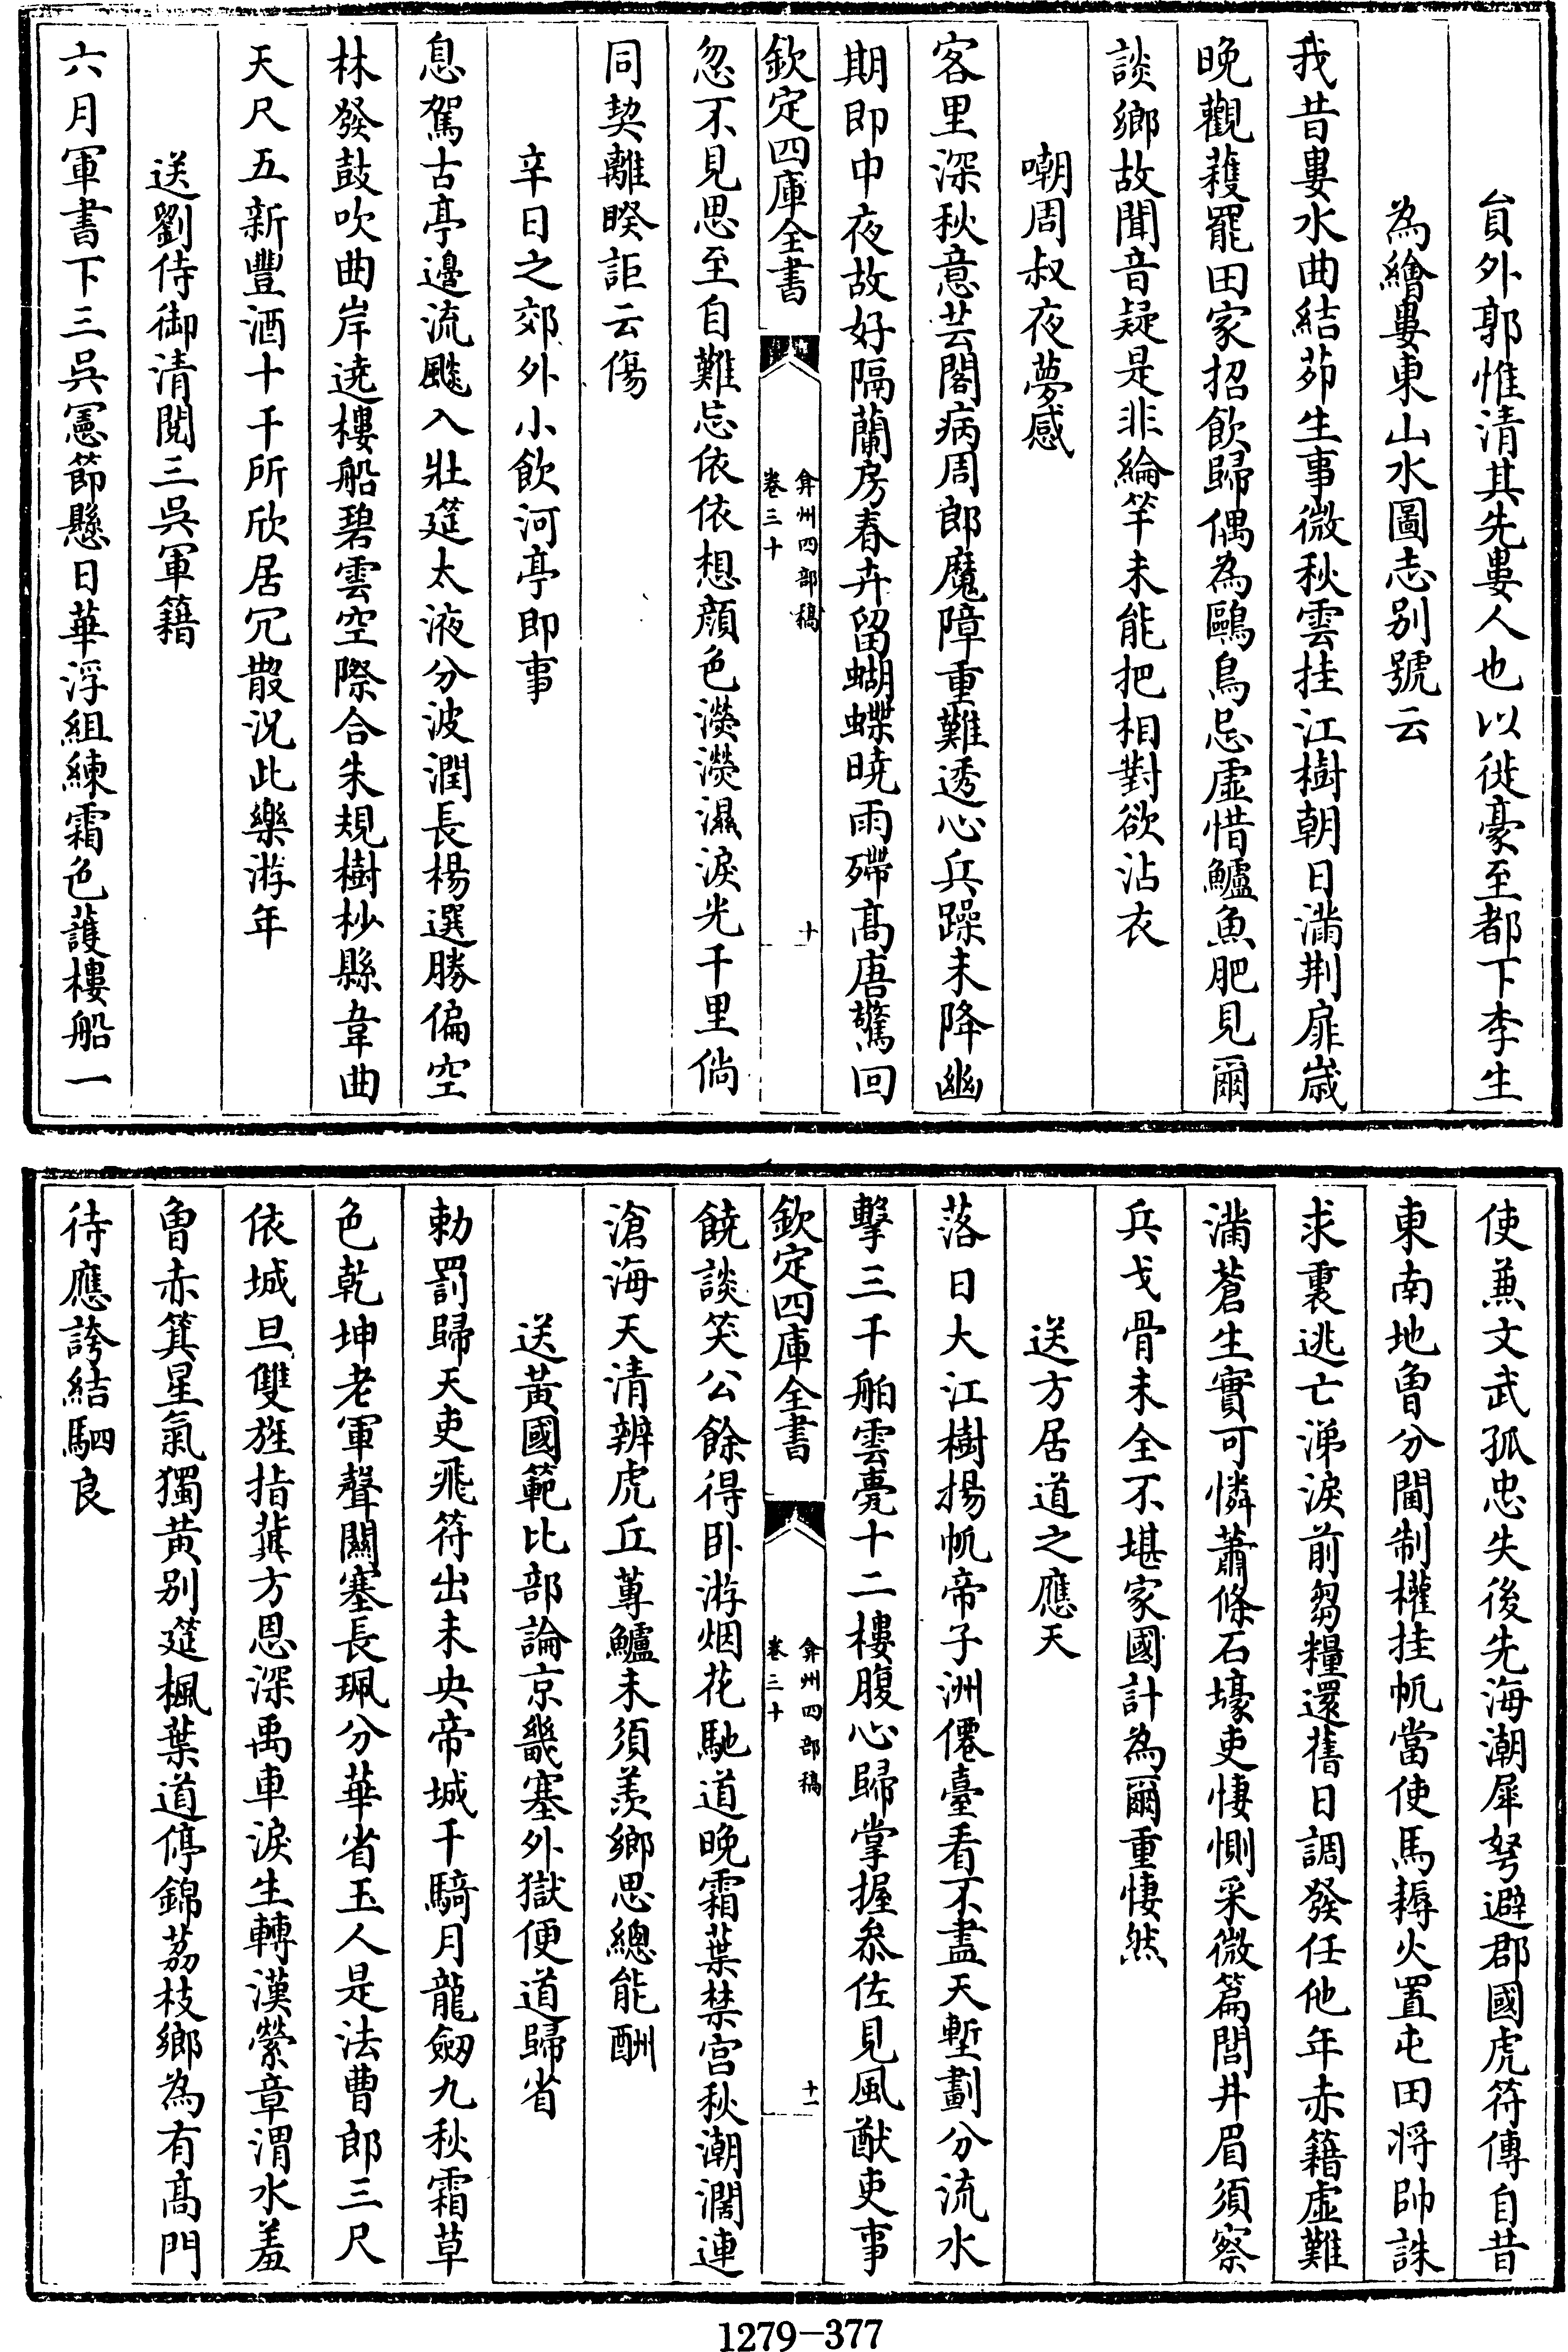 貟外郭惟清其先婁人也以徙豪至都下李生
為繪婁東山水圖志别號云
我昔婁水曲結茆生事微秋雲挂江樹朝日滿荆扉歳
晚觀穫罷田家招飲歸偶為鷗鳥忌虚惜鱸魚肥見爾
談鄉故聞音疑是非綸竿未能把相對欲沾衣
嘲周叔夜夢感
客里深秋意芸閣病周郎魔障重難透心兵躁未降幽
期即中夜故好隔蘭房春卉留蝴蝶曉雨殢髙唐驚回
欽定四庫全書
弇州四部稿
卷三十
十
忽不見思至自難忘依依想顔色濙濙濕淚光千里倘
同契離暌詎云傷
辛日之郊外小飲河亭即事
息駕古亭邊流飈入壯筵太液分波潤長楊選勝偏空
林發鼓吹曲岸遶樓船碧雲空際合朱規樹杪縣韋曲
天尺五新豐酒十千所欣居冗散況此樂游年
送劉侍御清閲三吳軍籍
六月軍書下三吳憲節懸日華浮組練霜色護樓船一
使兼文武孤忠失後先海潮犀弩避郡國虎符傳自昔
東南地曾分閫制權挂帆當使馬耨火置屯田将帥誅
求裏逃亡涕淚前芻糧還舊日調發任他年赤籍虚難
滿蒼生實可憐蕭條石壕吏悽惻采微篇閭井眉須察
兵戈骨未全不堪家國計為爾重悽然
送方居道之應天
落日大江樹揚帆帝子洲僊臺看不盡天塹劃分流水
擊三千舶雲甍十二樓腹心歸掌握叅佐見風猷吏事
欽定四庫全書
弇州四部稿
卷三十
十一
饒談笑公餘得卧游烟花馳道晚霜葉禁宫秋潮濶連
滄海天清辨虎丘蓴鱸未須羡鄉思總能酬
送黃國範比部論京畿塞外獄便道歸省
勅罰歸天吏飛符出未央帝城千騎月龍劒九秋霜草
色乾坤老軍聲關塞長珮分華省玉人是法曹郎三尺
依城旦雙旌指冀方恩深禹車淚生轉漢縈章渭水羞
曾赤箕星氣獨黃别筵楓葉道停錦荔枝鄉為有髙門
待應誇結駟良
1279—377